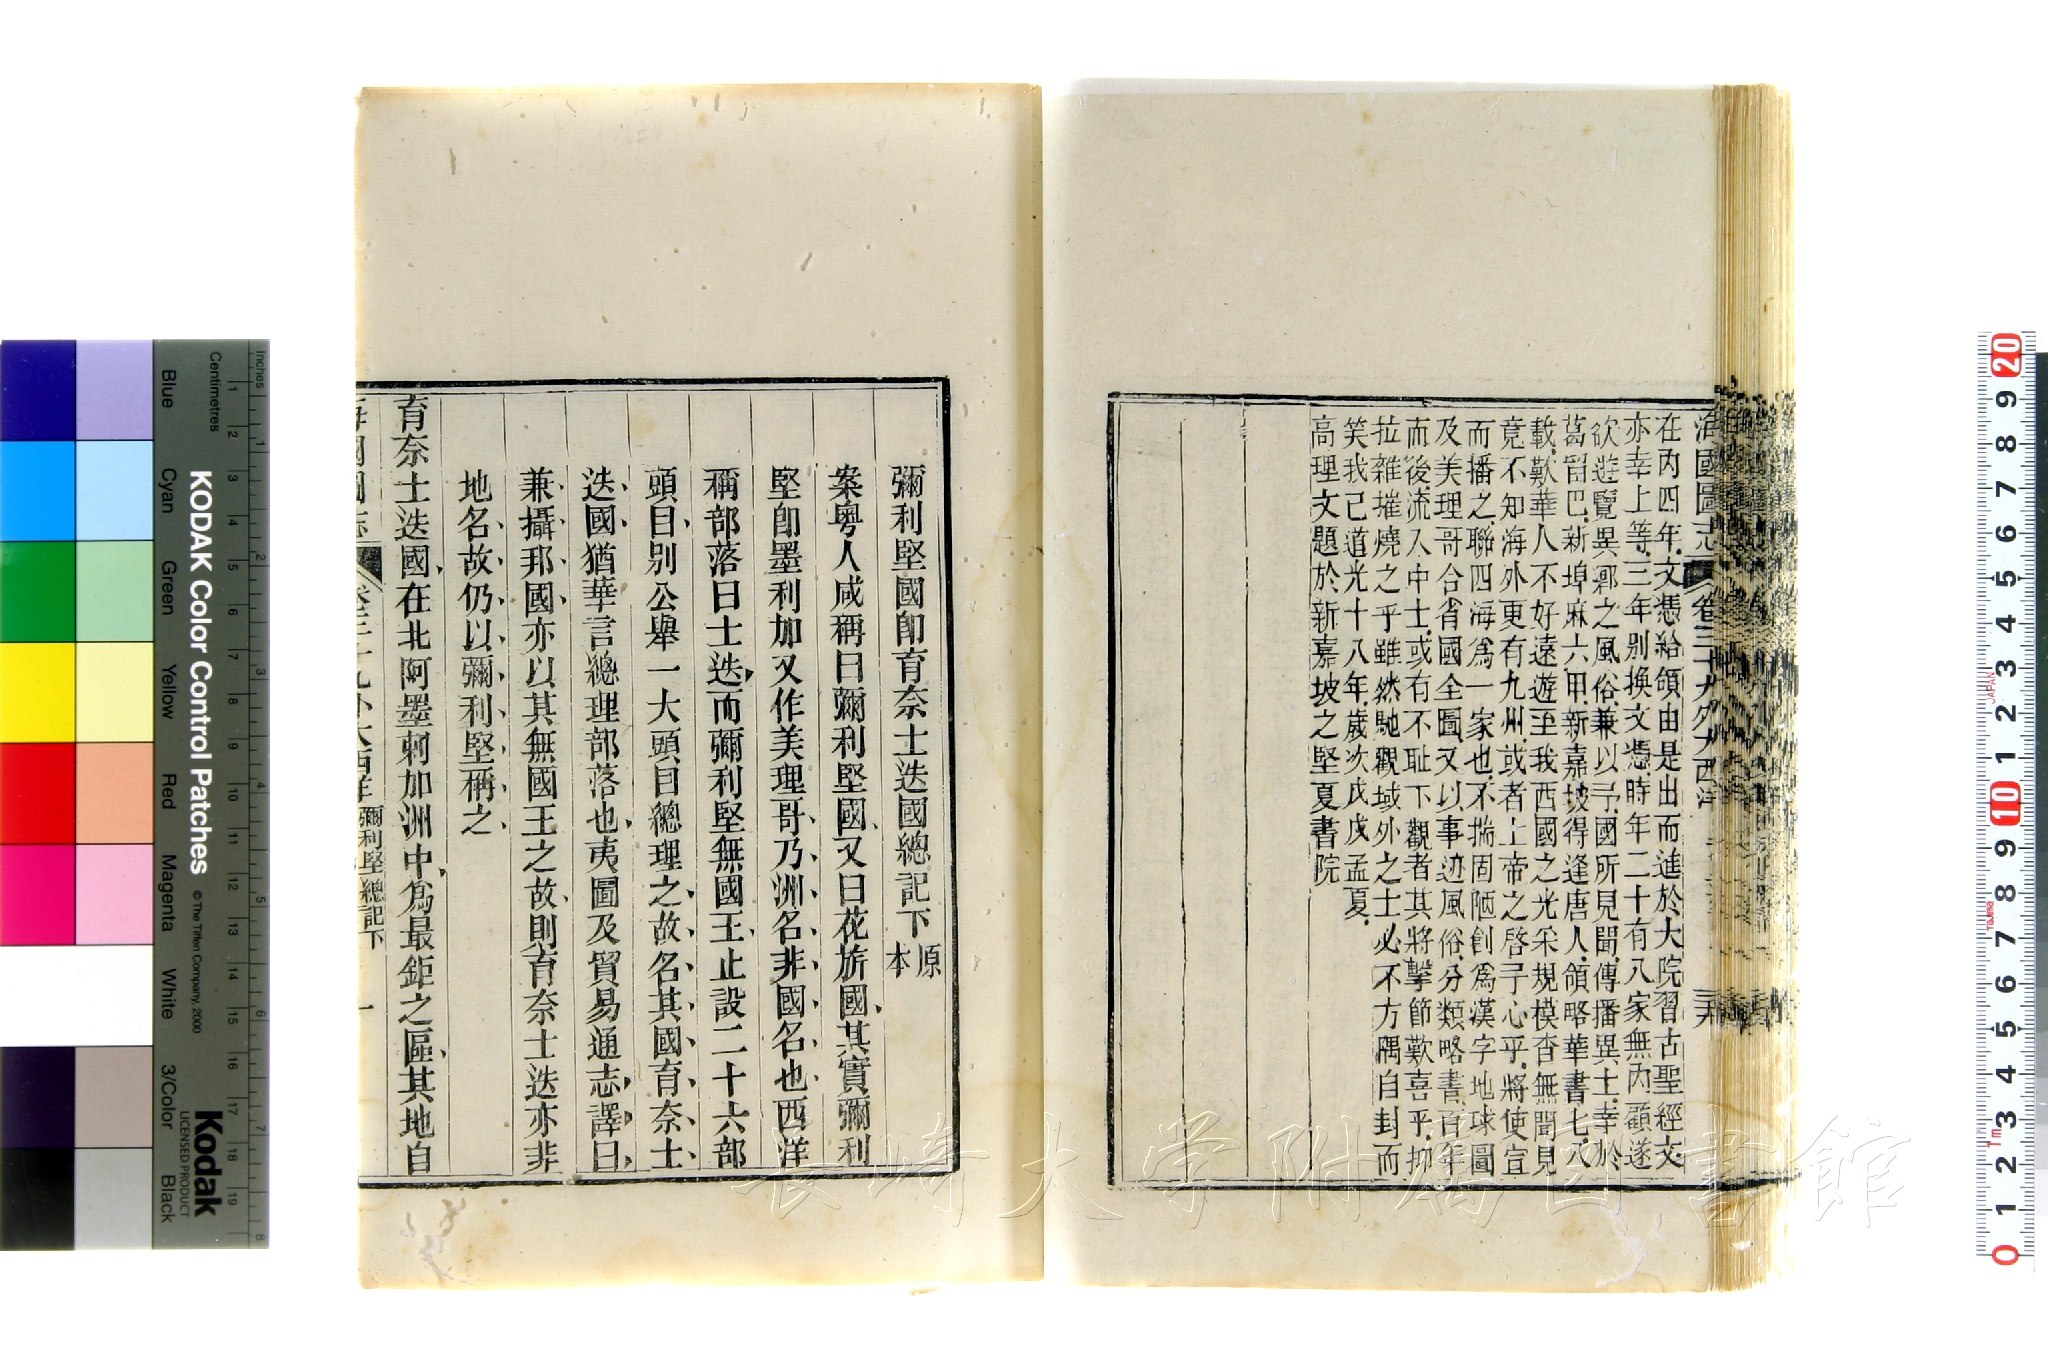 海國圖志
卷三十九外大西洋
三六
在內四年文憑給領由是出而進於大院習古聖經文
亦幸上等三年別換文憑時年二十有八家無內顧遂
欲遊覽異鄉之風俗兼以予國所見聞傳播異土幸於
葛留巴新埠麻六甲新嘉坡得逢唐人領略華書七八
載歎華人不好遠遊至我西國之光采規模杳無聞見
竟不知海外更有九州或者上帝之啓予心乎將使宣
而播之聯四海爲一家也不揣固陋創爲漢字地球圖
及美理哥合省國全圖又以事迹風俗分類略書百年
而後流入中土或有不恥下觀者其將擊節歎喜乎抑
拉雜摧燒之乎雖然馳觀域外之士必不方隅自封而
笑我已道光十八年歲次戊戌孟夏
高理文題於新嘉坡之堅夏書院
彌利堅國卽育奈士迭國總記下 原本
案粵人咸稱曰彌利堅國又曰花旂國其實彌利
堅卽墨利加又作美理哥乃洲名非國名也西洋
稱部落曰士迭而彌利堅無國王止設二十六部
頭目別公舉一大頭目總理之故名其國育奈士
迭國猶華言總理部落也夷圖及貿易通志譯曰
兼攝邦國亦以其無國王之故則育奈士迭亦非
地名故仍以彌利堅稱之
育奈士迭國在北阿墨利加洲中爲最鉅之區其地自
海國圖志 卷三十九外大西洋 彌利堅總記下 一
長崎大学附属図書館
KODAK Color Control Patches © The Tiffen Company, 2000
Kodak
LICENSED PRODUCT
Inches
Centimetres
Blue Cyan Green Yellow Red Magenta White 3/Color Black
1 2 3 4 5 6 7 8 9 10 11 12 13 14 15 16 17 18 19
1 2 3 4 5 6 7 8
20 9 8 7 6 5 4 3 2 1 10 9 8 7 6 5 4 3 2 1 0
JAPAN